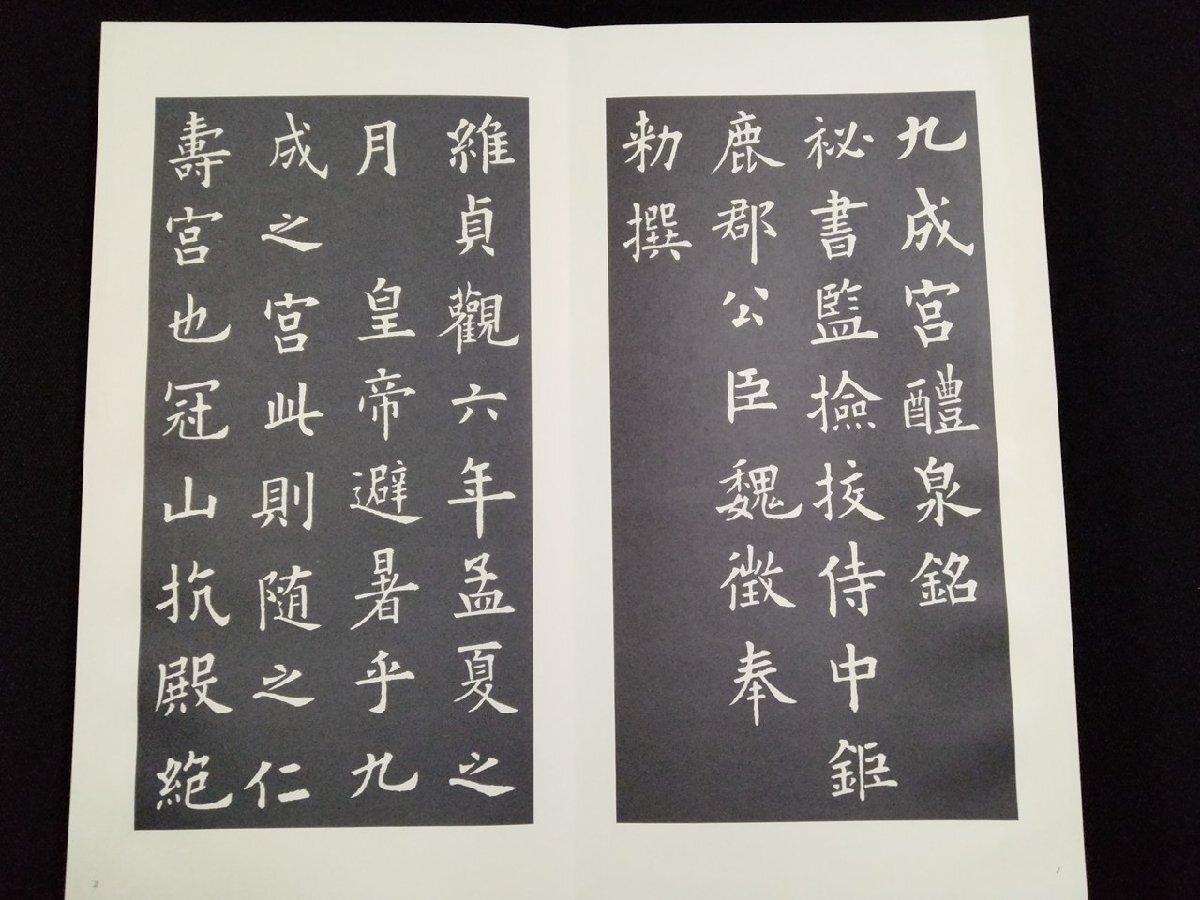 九成宮醴泉銘
祕書監撿挍侍中鉅
鹿郡公臣魏徵奉
勑撰
維貞觀六年孟夏之
月 皇帝避暑乎九
成之宮此則随之仁
壽宮也冠山抗殿絶
1
2